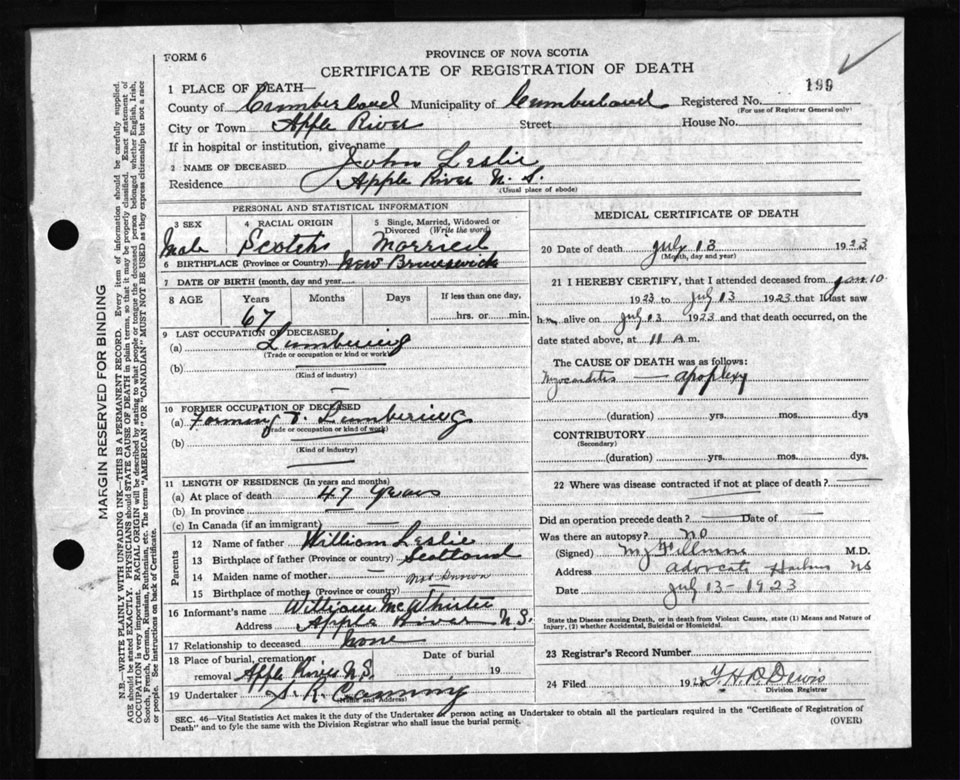 FORM 6
PROVINCE OF NOVA SCOTIA
CERTIFICATE OF REGISTRATION OF DEATH
199
1 PLACE OF DEATH—
County of Cumberland Municipality of Cumberland Registered No.
(For use of Registrar General only)
City or Town Apple River Street House No.
If in hospital or institution, give name
2 NAME OF DECEASED John Leslie
Residence Apple River N. S.
(Usual place of abode)
PERSONAL AND STATISTICAL INFORMATION
3 SEX 4 RACIAL ORIGIN 5 Single, Married, Widowed or Divorced (Write the word)
Male Scotch Married
6 BIRTHPLACE (Province or Country) New Brunswick
7 DATE OF BIRTH (month, day and year)
8 AGE Years Months Days If less than one day,
67 hrs. or min.
9 LAST OCCUPATION OF DECEASED
(a) Lumbering
(Trade or occupation or kind or work)
(b)
(Kind of industry)
10 FORMER OCCUPATION OF DECEASED
(a) Farming & Lumbering
(Trade or occupation or kind of work)
(b)
(Kind of industry)
11 LENGTH OF RESIDENCE (In years and months)
(a) At place of death 47 years
(b) In province
(c) In Canada (if an immigrant)
Parents
12 Name of father William Leslie
13 Birthplace of father (Province or country) Scotland
14 Maiden name of mother — Not Known
15 Birthplace of mother (Province or country)
16 Informant's name William McWhirter
Address Apple River N.S.
17 Relationship to deceased None
18 Place of burial, cremation or removal Apple River N.S. Date of burial 19
19 Undertaker S. R. Canning
(Name and Address)
MEDICAL CERTIFICATE OF DEATH
20 Date of death July 13 1923
(Month, day and year)
21 I HEREBY CERTIFY, that I attended deceased from Jan 10
1923 to July 13 1923 that I last saw
him alive on July 13 1923 and that death occurred, on
date stated above, at 11 A.m.
The CAUSE OF DEATH was as follows:
Myocarditis — apoplexy
(duration) yrs. mos. dys
CONTRIBUTORY
(Secondary)
(duration) yrs. mos. dys.
22 Where was disease contracted if not at place of death?
Did an operation precede death? Date of
Was there an autopsy? No
(Signed) M.D.
Address Advocate Harbour NS
Date July 13 - 1923
State the Disease causing Death, or in death from Violent Causes, state (1) Means and Nature of Injury, (2) whether Accidental, Suicidal or Homicidal.
23 Registrar's Record Number
24 Filed 192
Division Registrar
SEC. 46—Vital Statistics Act makes it the duty of the Undertaker or person acting as Undertaker to obtain all the particulars required in the "Certificate of Registration of
Death" and to fyle the same with the Division Registrar who shall issue the burial permit. (OVER)
MARGIN RESERVED FOR BINDING
N.B.—WRITE PLAINLY WITH UNFADING INK—THIS IS A PERMANENT RECORD. Every item of information should be carefully supplied.
AGE should be stated EXACTLY. PHYSICIANS should STATE CAUSE OF DEATH in plain terms, so that it may be properly classified. Exact statement of
OCCUPATION is very important. RACIAL ORIGIN will be described by stating to what people or tongue the deceased person belonged whether English, Irish,
Scotch, French, German, Russian, Ruthenian, etc. The terms "AMERICAN" OR "CANADIAN" MUST NOT BE USED as they express citizenship but not a race
or people. See instructions on back of Certificate.